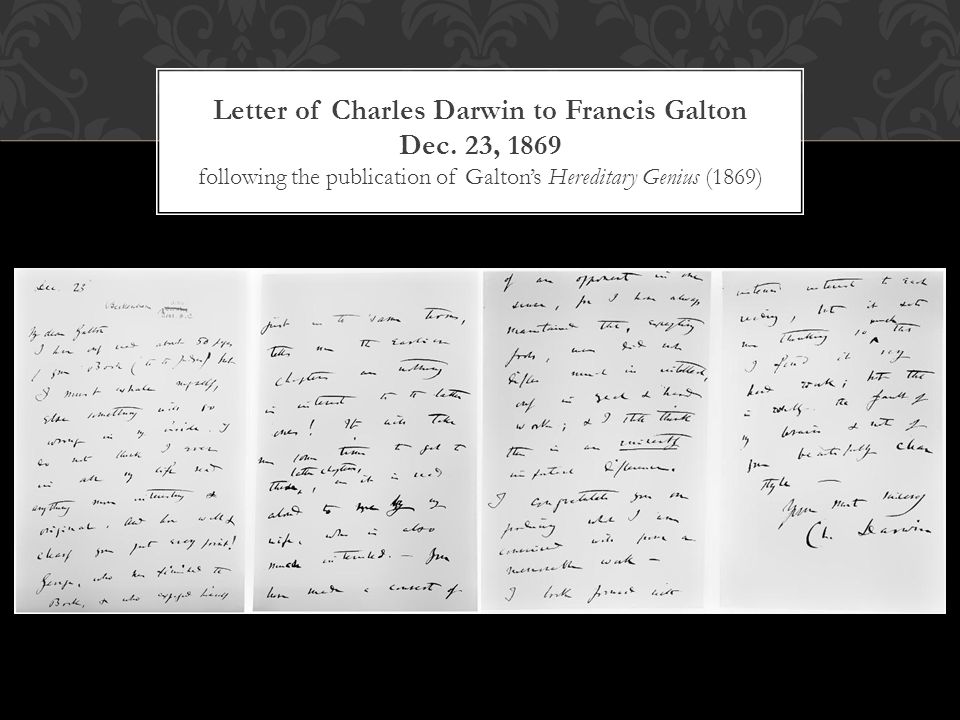 Letter of Charles Darwin to Francis Galton
Dec. 23, 1869
following the publication of Galton's Hereditary Genius (1869)
Dec. 23
Beckenham
My dear Galton
I have only read about 50 pages
of your Book (to to Judges) but
I must exhale myself,
else something will go
wrong in my inside. I
do not think I ever
in all my life read
anything more interesting &
original. And how well &
clearly you put every point!
George, who has finished the
Book, & who expressed himself
just in the same terms,
tells me the earlier
chapters are nothing
in interest to the latter
ones! It will take
me some time to get to
latter chapters,
these, as it is read
aloud to me by my
wife, who is also
much interested. — You
have made a convert of
of an opponent in one
sense, for I have always
maintained that, excepting
fools, men did not
differ much in intellect,
only in zeal & hard
work; & I still think
there is an eminently
important difference.
I congratulate you on
producing what I am
convinced will prove a
memorable work —
I look forward with
intense interest to each
reading, but it sets
me thinking so much
that I find it very
hard work; but that
is wholly the fault of
my brain & not of
your beautifully clear
style —
Yours most sincerely
Ch. Darwin